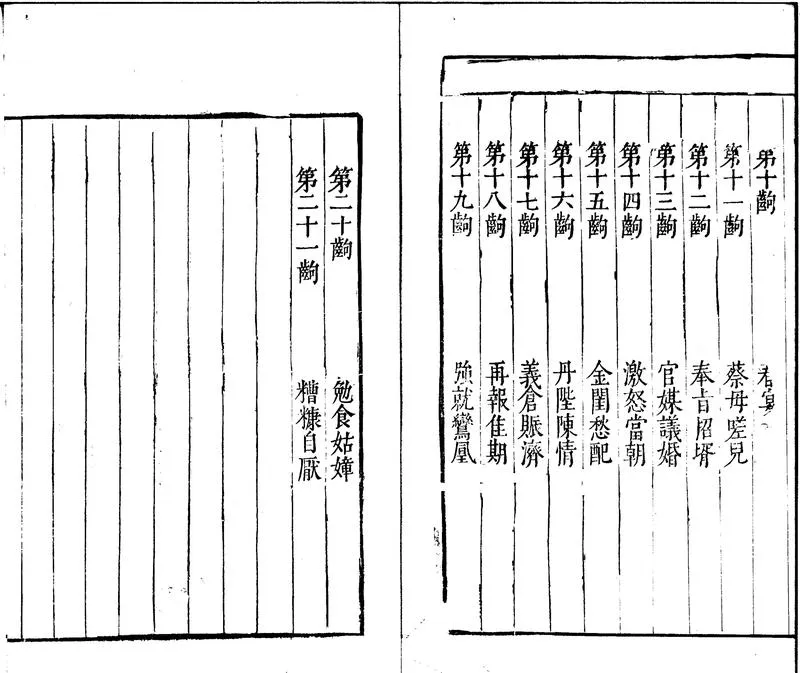 第十齣 春宴
第十一齣 蔡母嗟兒
第十二齣 奉旨招壻
第十三齣 官媒議婚
第十四齣 激怒當朝
第十五齣 金閨愁配
第十六齣 丹陛陳情
第十七齣 義倉賑濟
第十八齣 再報佳期
第十九齣 强就鸞凰
第二十齣 勉食姑嫜
第二十一齣 糟糠自厭